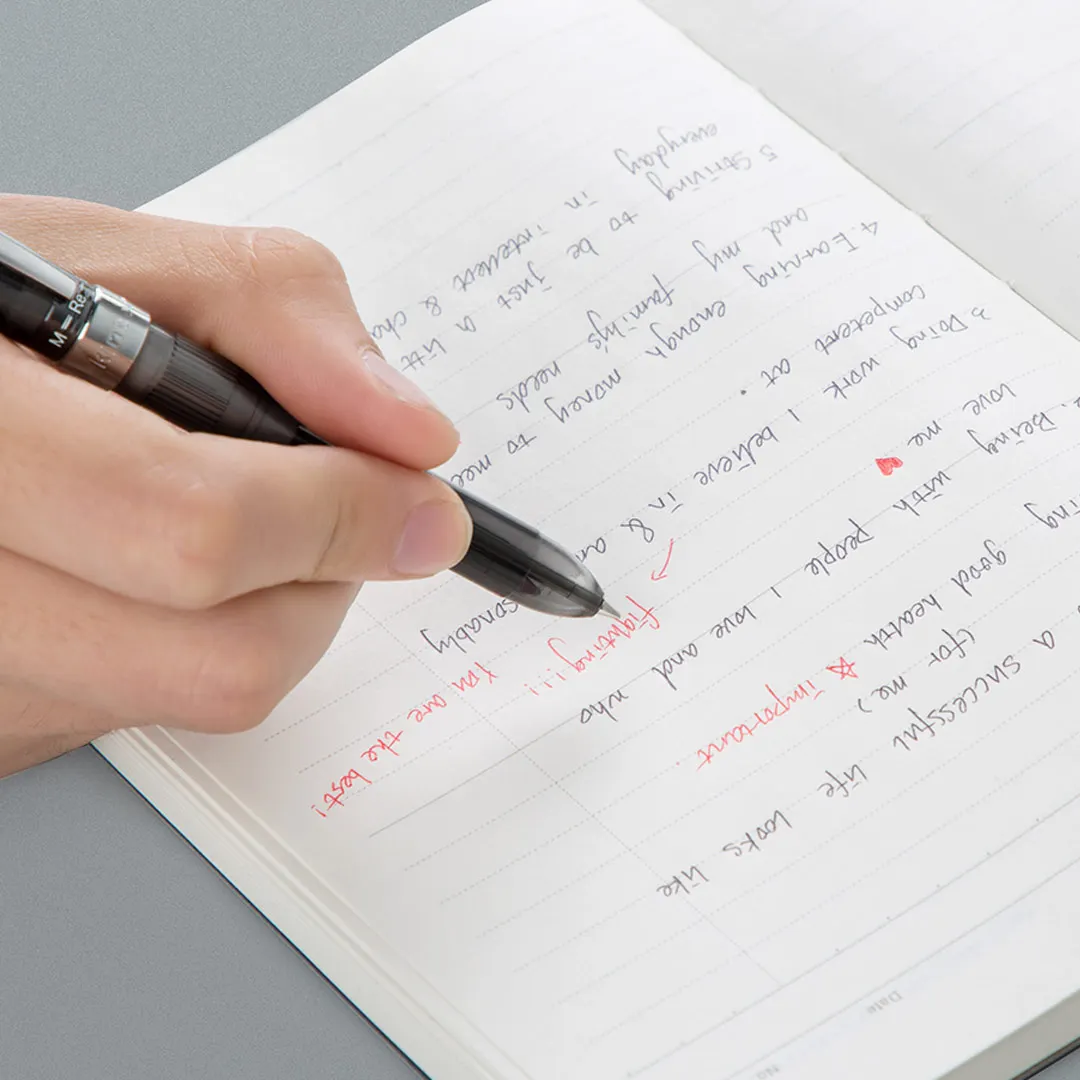 No.
Date
A successful life looks like
(for me)
ing good health ☆ important.
2. Being with people I love and who
love me ♥
3 Doing work I believe in & a sonably
competent at.
fighting!!!
You are the best!
4. Earning enough money to mee
and my family's needs
5 Striving to be just a litt
in intellect & cha
everyday
M=Re